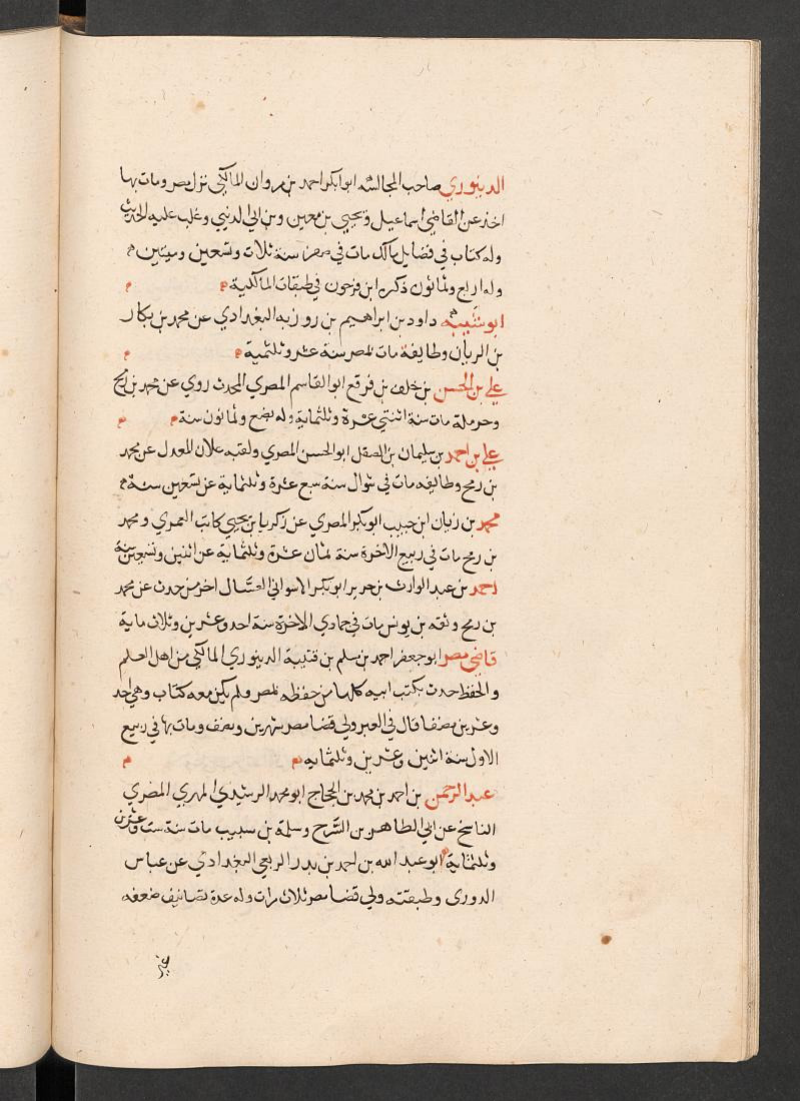 الدينوري صاحب المجالسة ابو ابكر احمد بن مروان المالكي نزل مصر ومات بها
اخذ عن القاضي اسماعيل ويحيي بن معين وبن ابي الدنيي وغلب عليه الحديث
وله كتاب في فضايل مالك مات في صفر سنة ثلاث وتسعين وميتين
وله اربع وثمانون ذكره ابن فرحون في طبقات المالكية
ابو شيبه داود بن ابراهيم بن روزبه البغدادي عن محمد بن بكار
بن الريان وطايفة مات بمصر سنة عشر وثلثمية
علي بن الحسن بن خلف بن فرقع ابو القاسم المصري المحدث روي عن محمد بن رمح
وحرملة مات سنة اثنتي عشرة وثلثماية وله بضع وثمانون سنة
علي بن احمد بن سليمان بن الصقل ابو الحسن المصري ولقبه علان المعدل عن محمد
بن رمح وطايفه مات في شوال سنة سبع عشرة وثلثماية عن تسعين سنة
محمد بن زبان ابن حبيب ابو بكر المصري عن زكريا بن يحيي كاتب العمري ومحمد
بن رمح مات في ربيع الاخرة سنة ثمان عشرة وثلثماية عن اثنين وتسعين سنة
احمد بن عبد الوارث بن جرير ابو بكر الاسواني العسال اخر من حدث عن محمد
بن رمح وثقه بن يونس مات في جمادي الاخرة سنة احد وعشرين وثلاث ماية
قاضي مصر ابو جعفر احمد بن سلم بن قتيبة الدينوري المالكي من اهل العلم
والحفظ حدث بكتب ابيه كلها من حفظه بمصر ولم يكن معه كتاب وهي احد
وعشرين مصنفا قال في العبر ولي قضا مصر شهرين ونصف ومات بها في ربيع
الاول سنة اثنين وعشرين وثلثمايه
عبد الرحمن بن احمد بن محمد بن الحجاج ابو محمد الرشيدي المهري المصري
الناسخ عن ابي الطاهر بن السرح وسلمة بن سبيب مات سنة ست وعشرين
وثلثماية ابو عبد الله بن احمد بن بدر الربعي البغدادي عن عباس
الدوري وطبقته ولي قضا مصر ثلاث مرات وله عدة تصانيف ضعفه